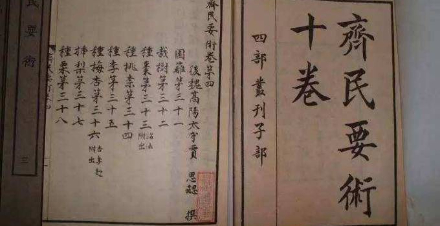 齊民要術
十卷
四部叢刊子部
齊民要術卷第四
後魏高陽太守賈 思勰 撰
園籬第三十一
栽樹第三十二
種棗第三十三 法附出
種桃柰第三十四
種李第三十五
種梅杏第三十六 杏李附出
插梨第三十七
種栗第三十八
民要術